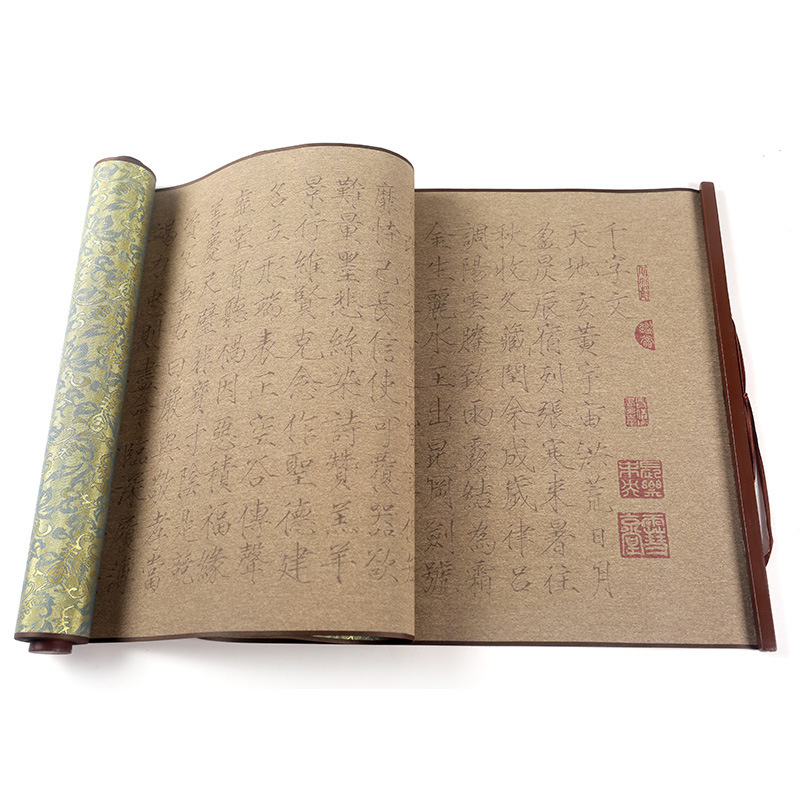 千字文
天地玄黃宇宙洪荒日月
盈昃辰宿列張寒來暑往
秋收冬藏閏余成歲律呂
調陽雲騰致雨露結為霜
金生麗水玉出昆岡劍號
靡恃己長信使可覆器欲
難量墨悲絲染詩贊羔羊
景行維賢克念作聖德建
名立形端表正空谷傳聲
虛堂習聽禍因惡積福緣
善慶尺璧非寶寸陰是競
父事君曰嚴與敬孝當
竭力忠則盡命臨深履薄